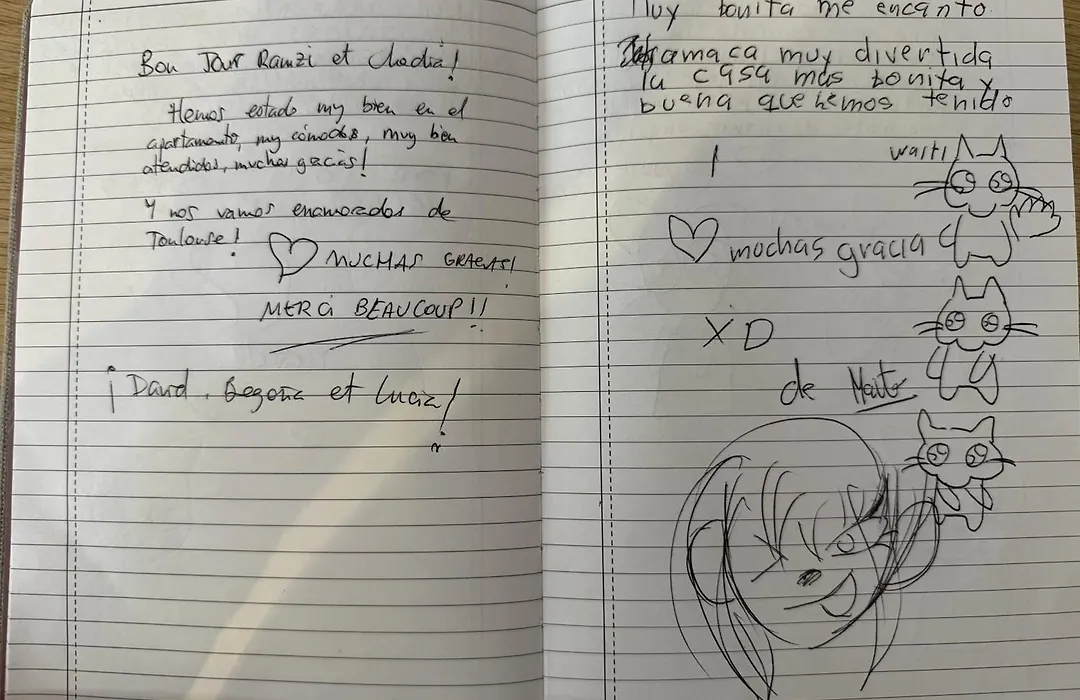 Bon Jour Ramzi et Chadia!
Hemos estado my bien en el
apartamento, my cómodos, muy bien
atendidos, muchas gracias!
Y nos vamos enamorados de
Toulouse!
MUCHAS GRACIAS!
MERCi BEAUCOUP!!
¡David, Begoña et Lucia!
Muy bonita me encanto
amaca muy divertida
la casa mas bonita y
buena que hemos tenido
waiti
mochas gracia
XD
de Maite